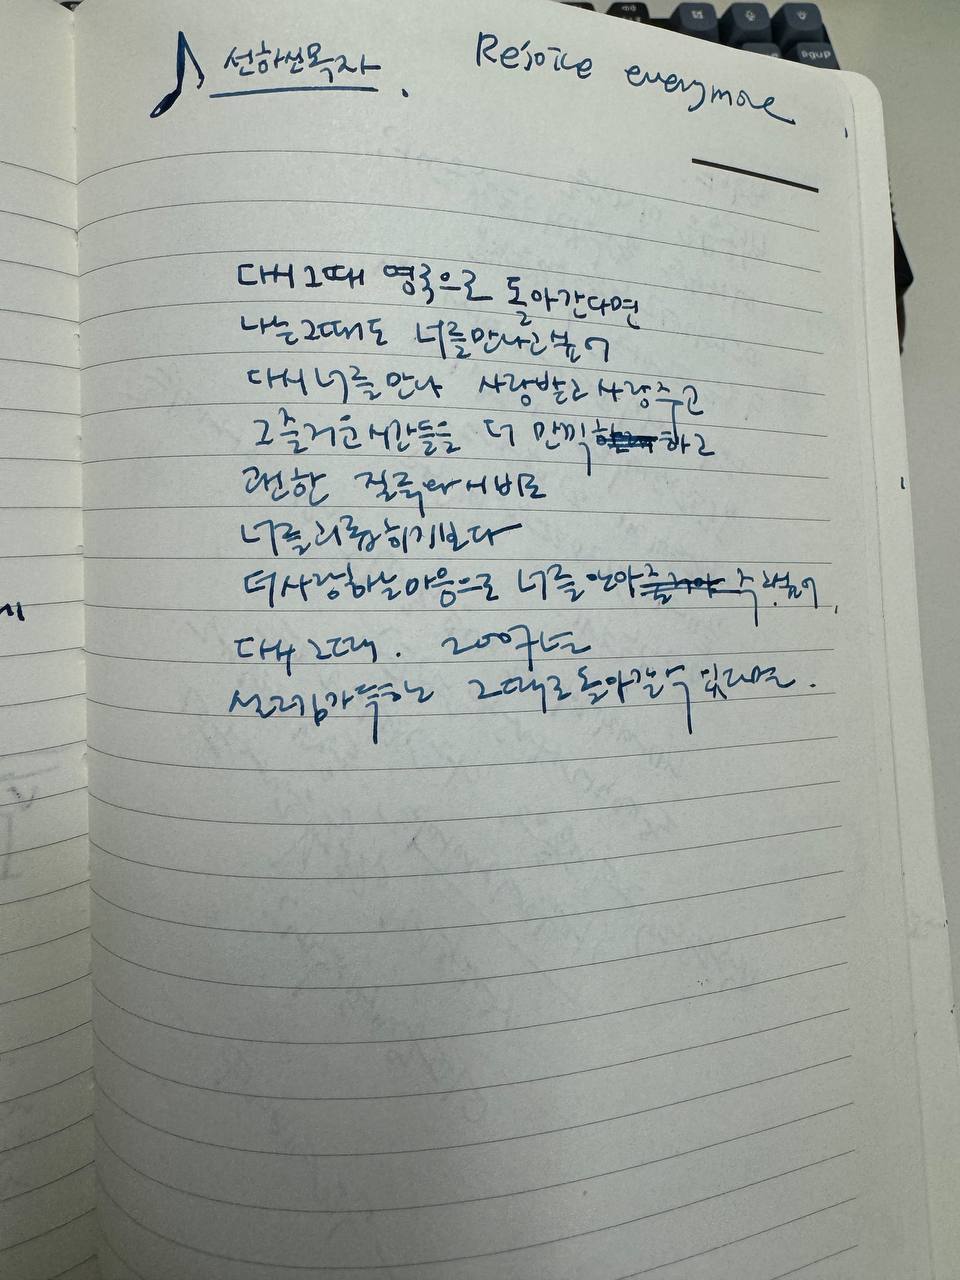 선하신목자. Rejoice evermore
다시 그때 영국으로 돌아간다면
나는 그때도 너를 만나고 싶어
다시 너를 만나 사랑받고 사랑주고
그 즐거운 시간들을 더 만끽하고
괜한 질투와 시비로
너를 괴롭히기보다
더 사랑하는 마음으로 너를 안아주고싶어.
다시 그때. 2007년
설레임 가득하는 그때로 돌아갈 수 있다면.